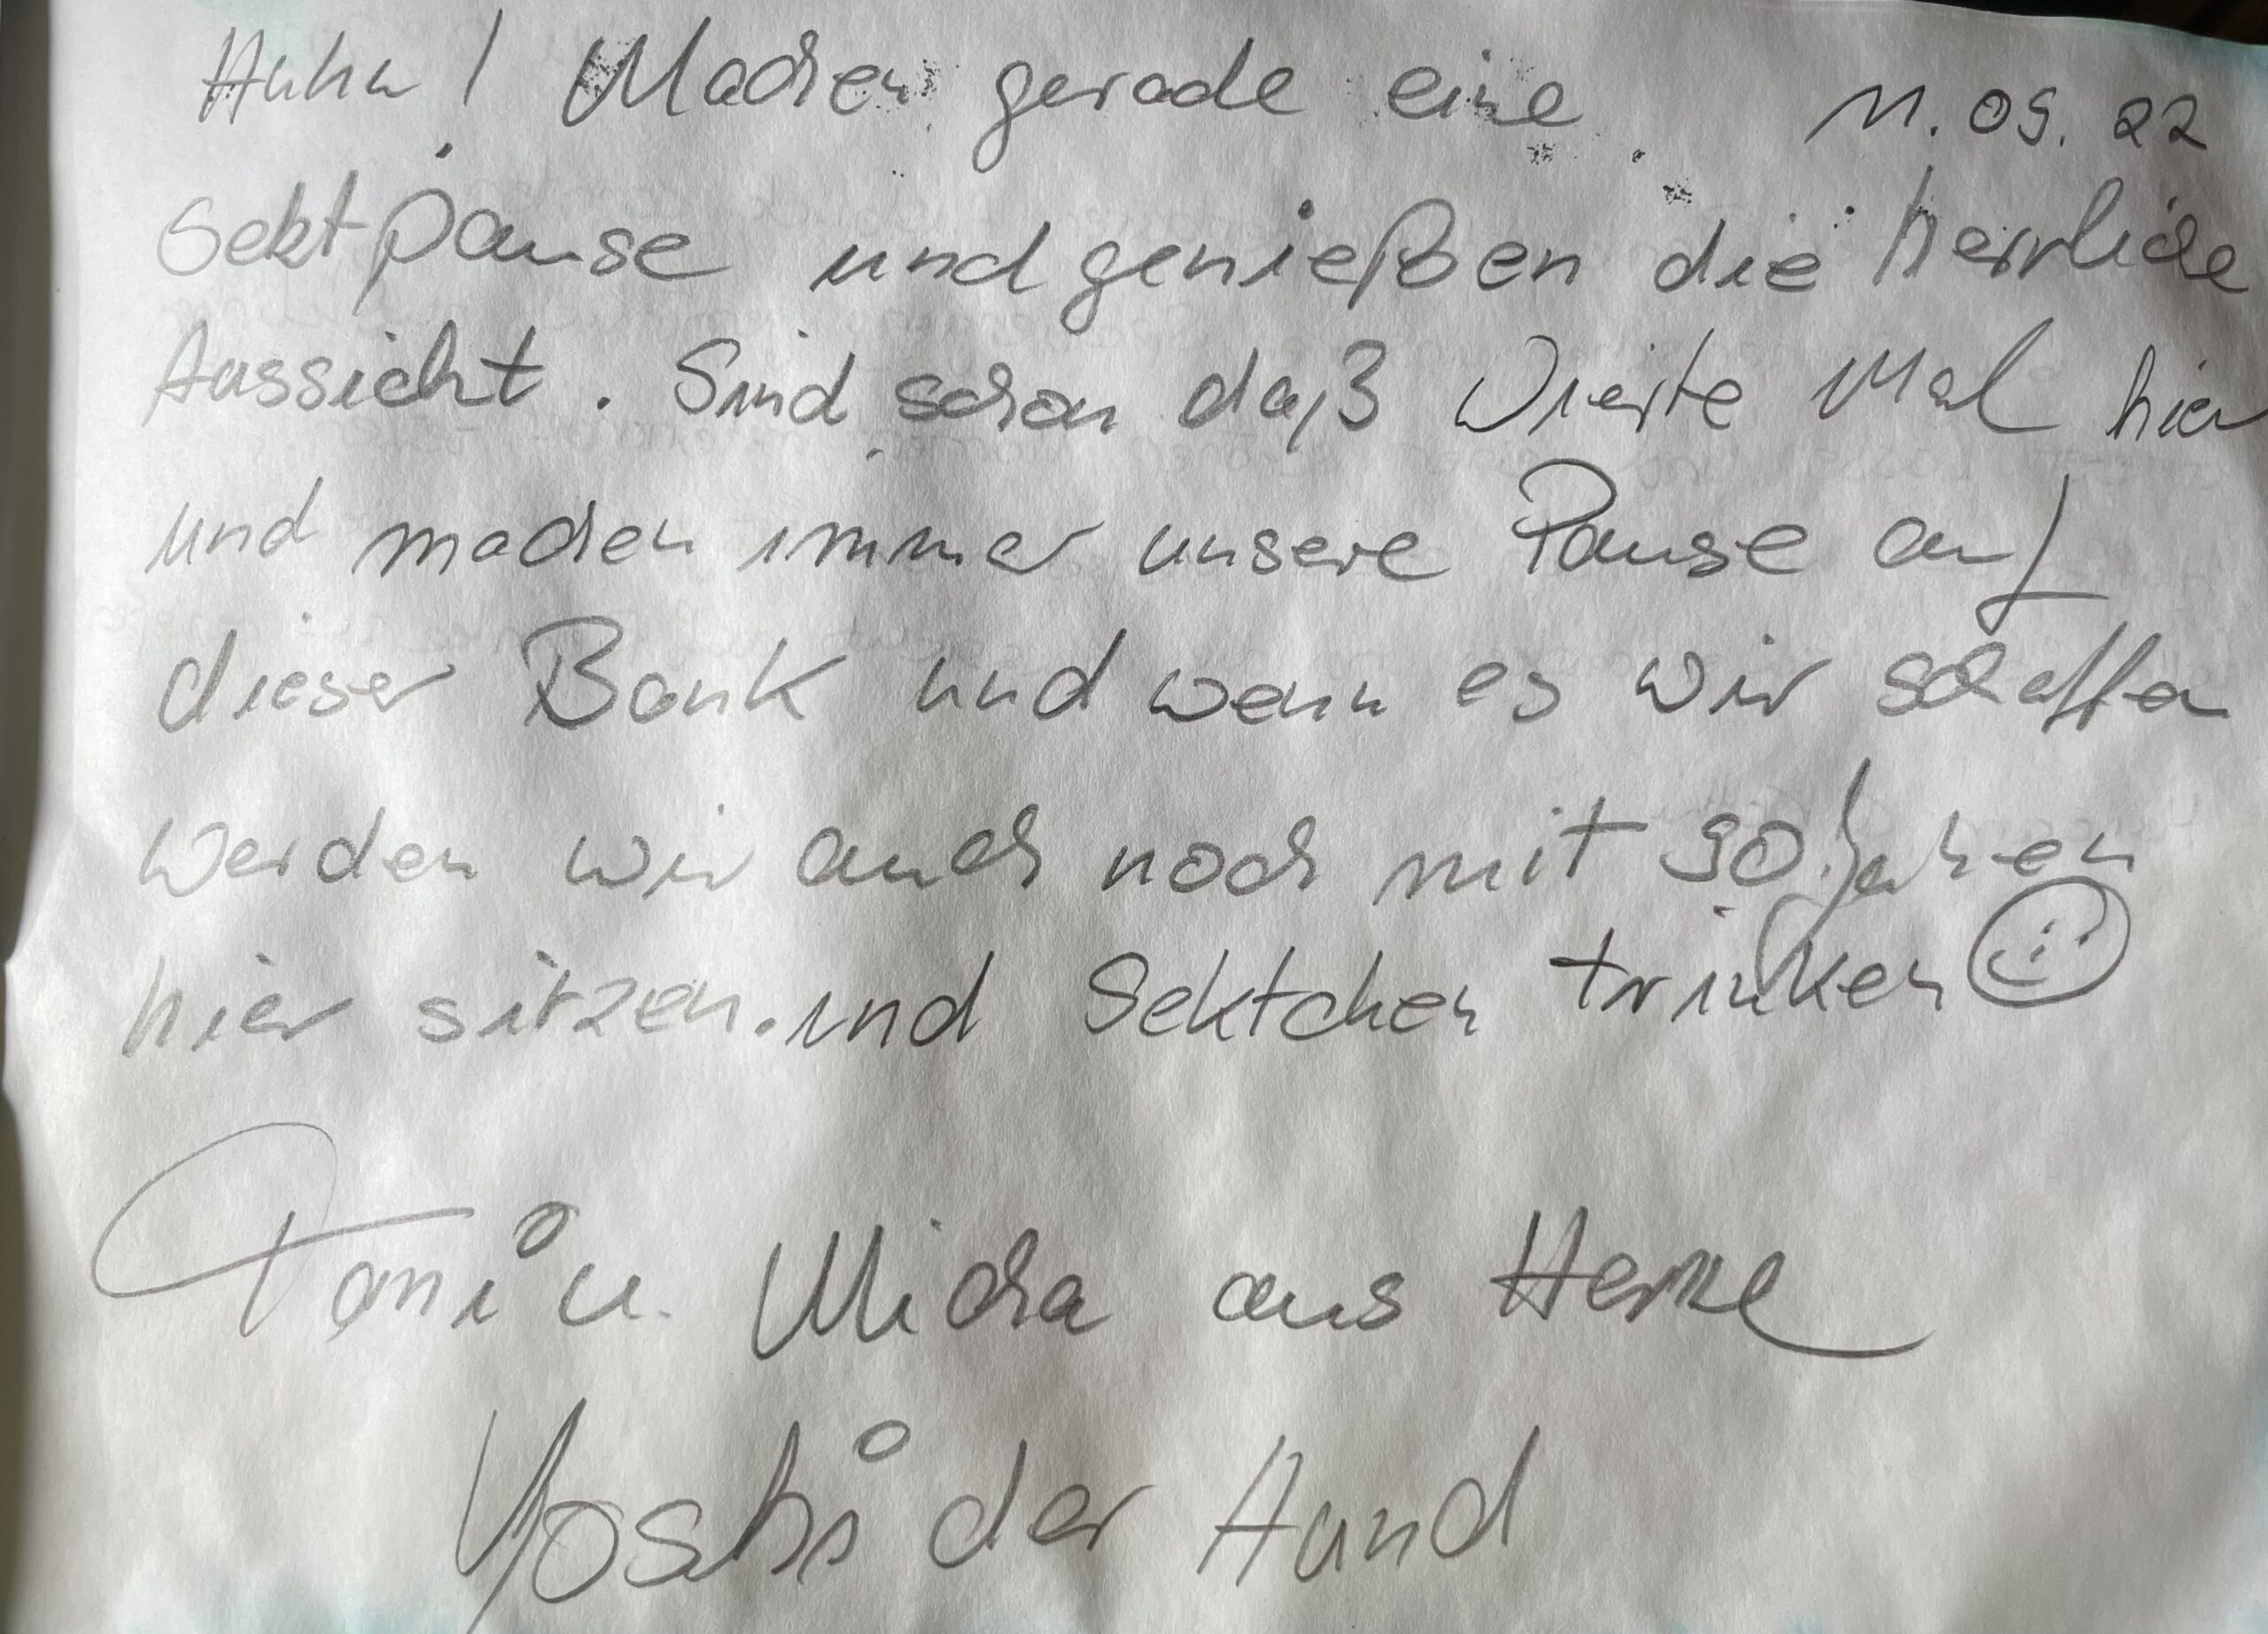 Huhu! Machen gerade eine 11.09.22
Sektpause und genießen die herrliche
Aussicht. Sind schon daß vierte Mal hier
und machen immer unsere Pause auf
dieser Bank und wenn es wir schaffen
werden wir auch noch mit 90 Jahren
hier sitzen. und Sektchen trinken
Tani u. Micha aus Herne
Yoshi der Hund